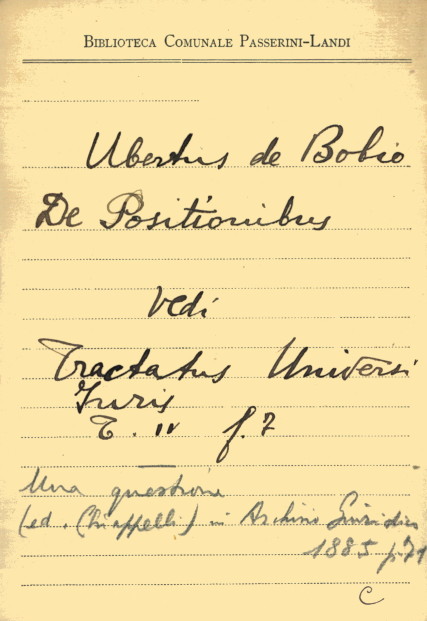 BIBLIOTECA COMUNALE PASSERINI-LANDI
Ubertus de Bobio
De Positionibus
Vedi
Tractatus Universi
Juris
T. " f. 7
Una questione
(ed. Chiappelli) in Archivio Giuridico
1885 p. 71
C